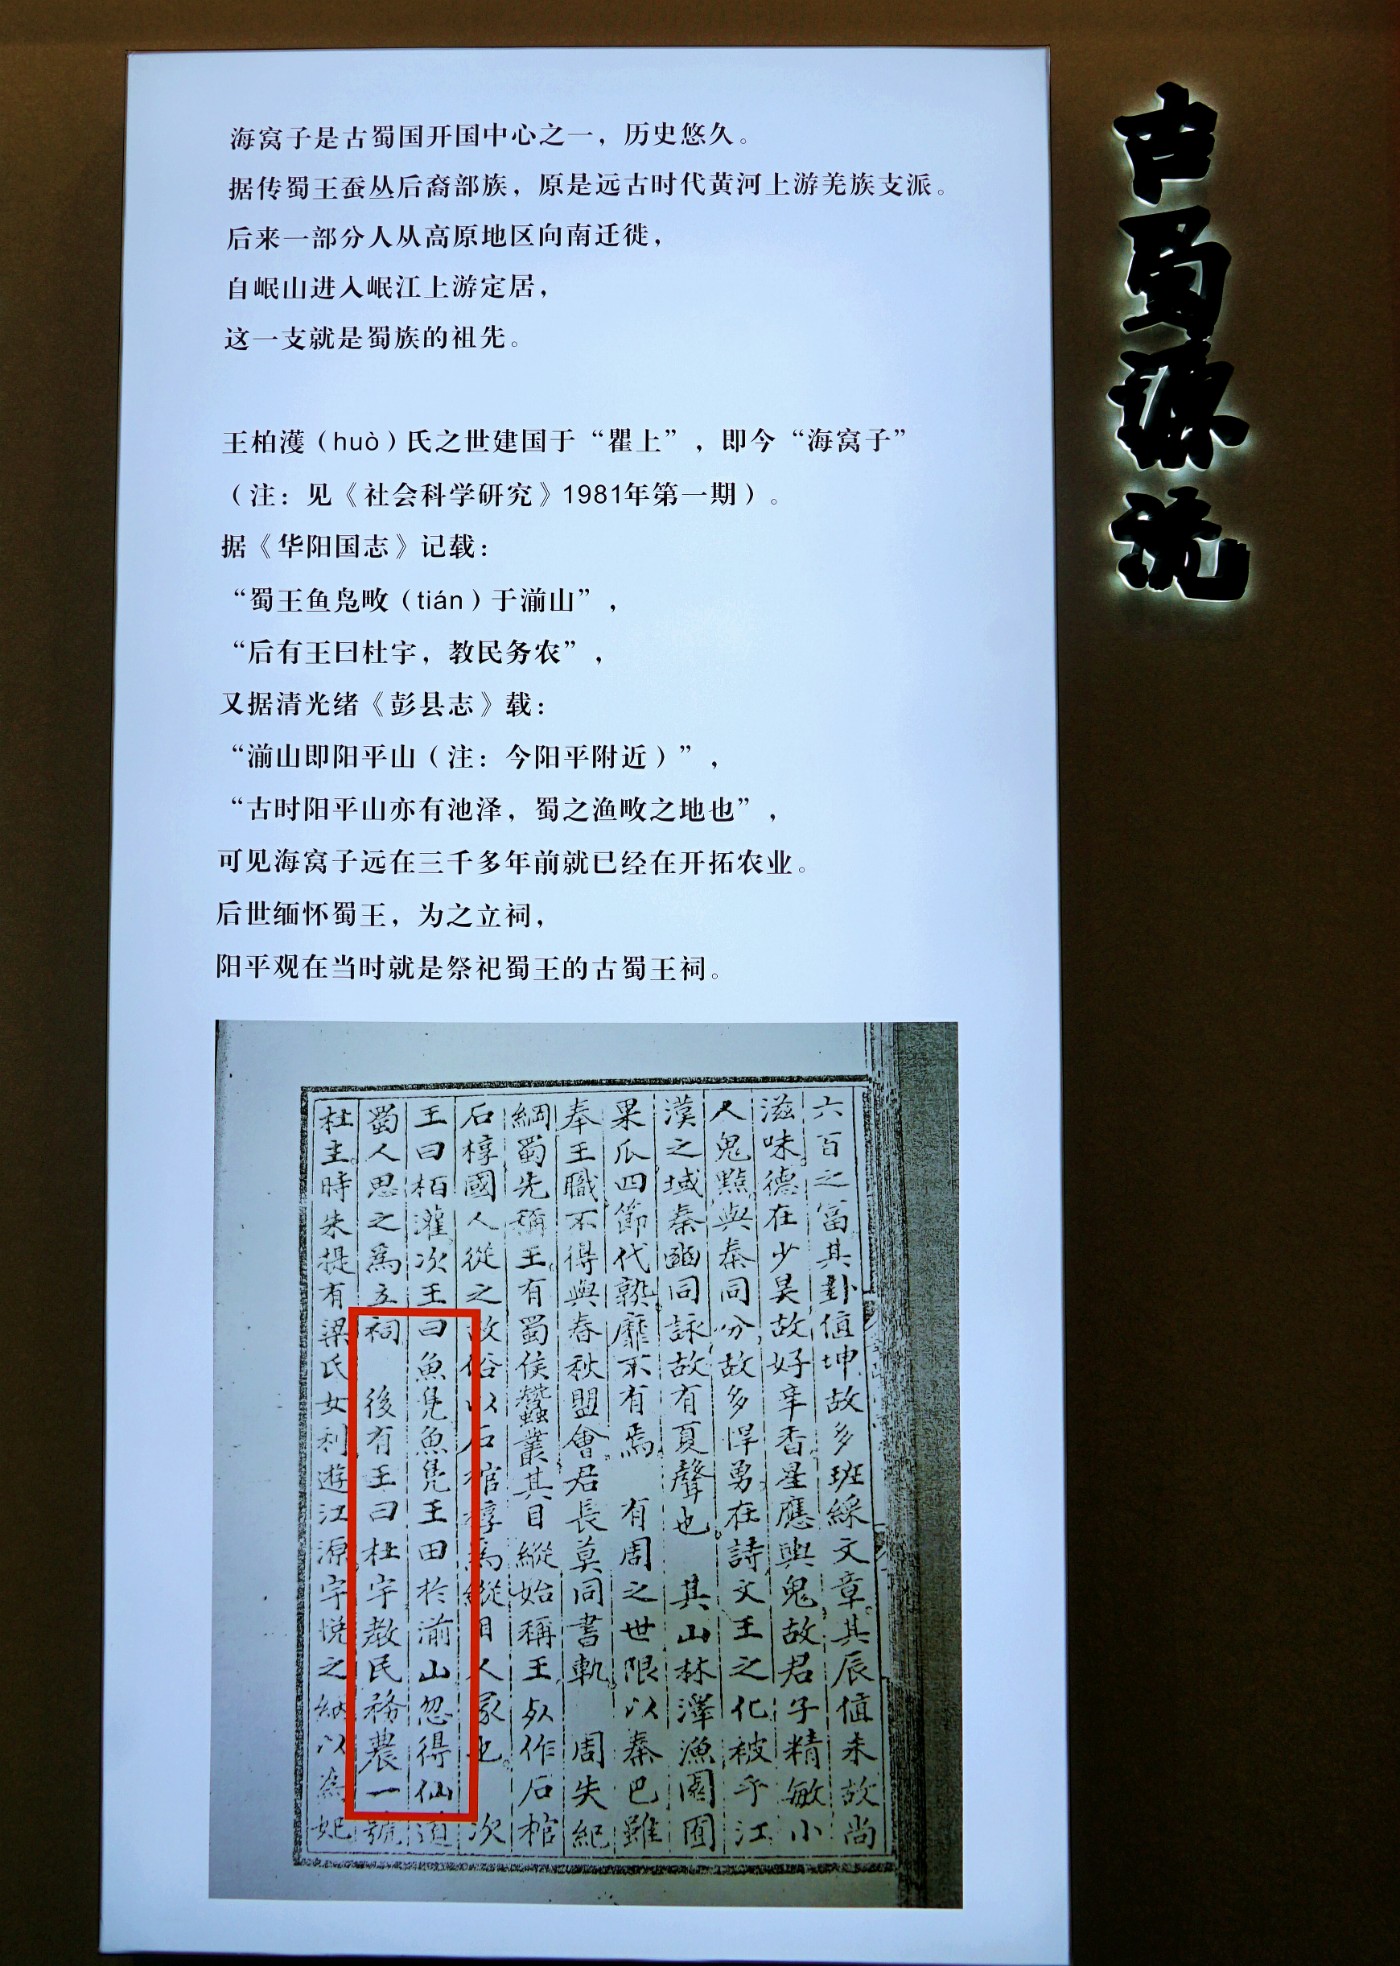 古蜀源流
海窝子是古蜀国开国中心之一，历史悠久。
据传蜀王蚕丛后裔部族，原是远古时代黄河上游羌族支派。
后来一部分人从高原地区向南迁徙，
自岷山进入岷江上游定居，
这一支就是蜀族的祖先。
王柏濩（huò）氏之世建国于“瞿上”，即今“海窝子”
（注：见《社会科学研究》1981年第一期）。
据《华阳国志》记载：
“蜀王鱼凫畋（tián）于湔山”，
“后有王曰杜宇，教民务农”，
又据清光绪《彭县志》载：
“湔山即阳平山（注：今阳平附近）”，
“古时阳平山亦有池泽，蜀之渔畋之地也”，
可见海窝子远在三千多年前就已经在开拓农业。
后世缅怀蜀王，为之立祠，
阳平观在当时就是祭祀蜀王的古蜀王祠。
六百之富其卦值坤故多班綵文章其辰值未故尚
滋味德在少昊故好辛香星應輿鬼故君子精敏小
人鬼黠與秦同分故多悍勇在詩文王之化被乎江
漢之域秦豳同詠故有夏聲也 其山林澤漁園囿
果瓜四節代熟靡不有焉 有周之世限以秦巴雖
奉王職不得與春秋盟會君長莫同書軌 周失紀
綱蜀先稱王有蜀侯蠶叢其目縱始稱王死作石棺
石椁國人從之故俗以石棺椁為縱目人冢也 次
王曰栢灌次王曰魚鳧魚鳧王田於湔山忽得仙道
蜀人思之爲立祠 後有王曰杜宇教民務農一號
杜主時朱提有梁氏女利遊江源宇悅之納以為妃